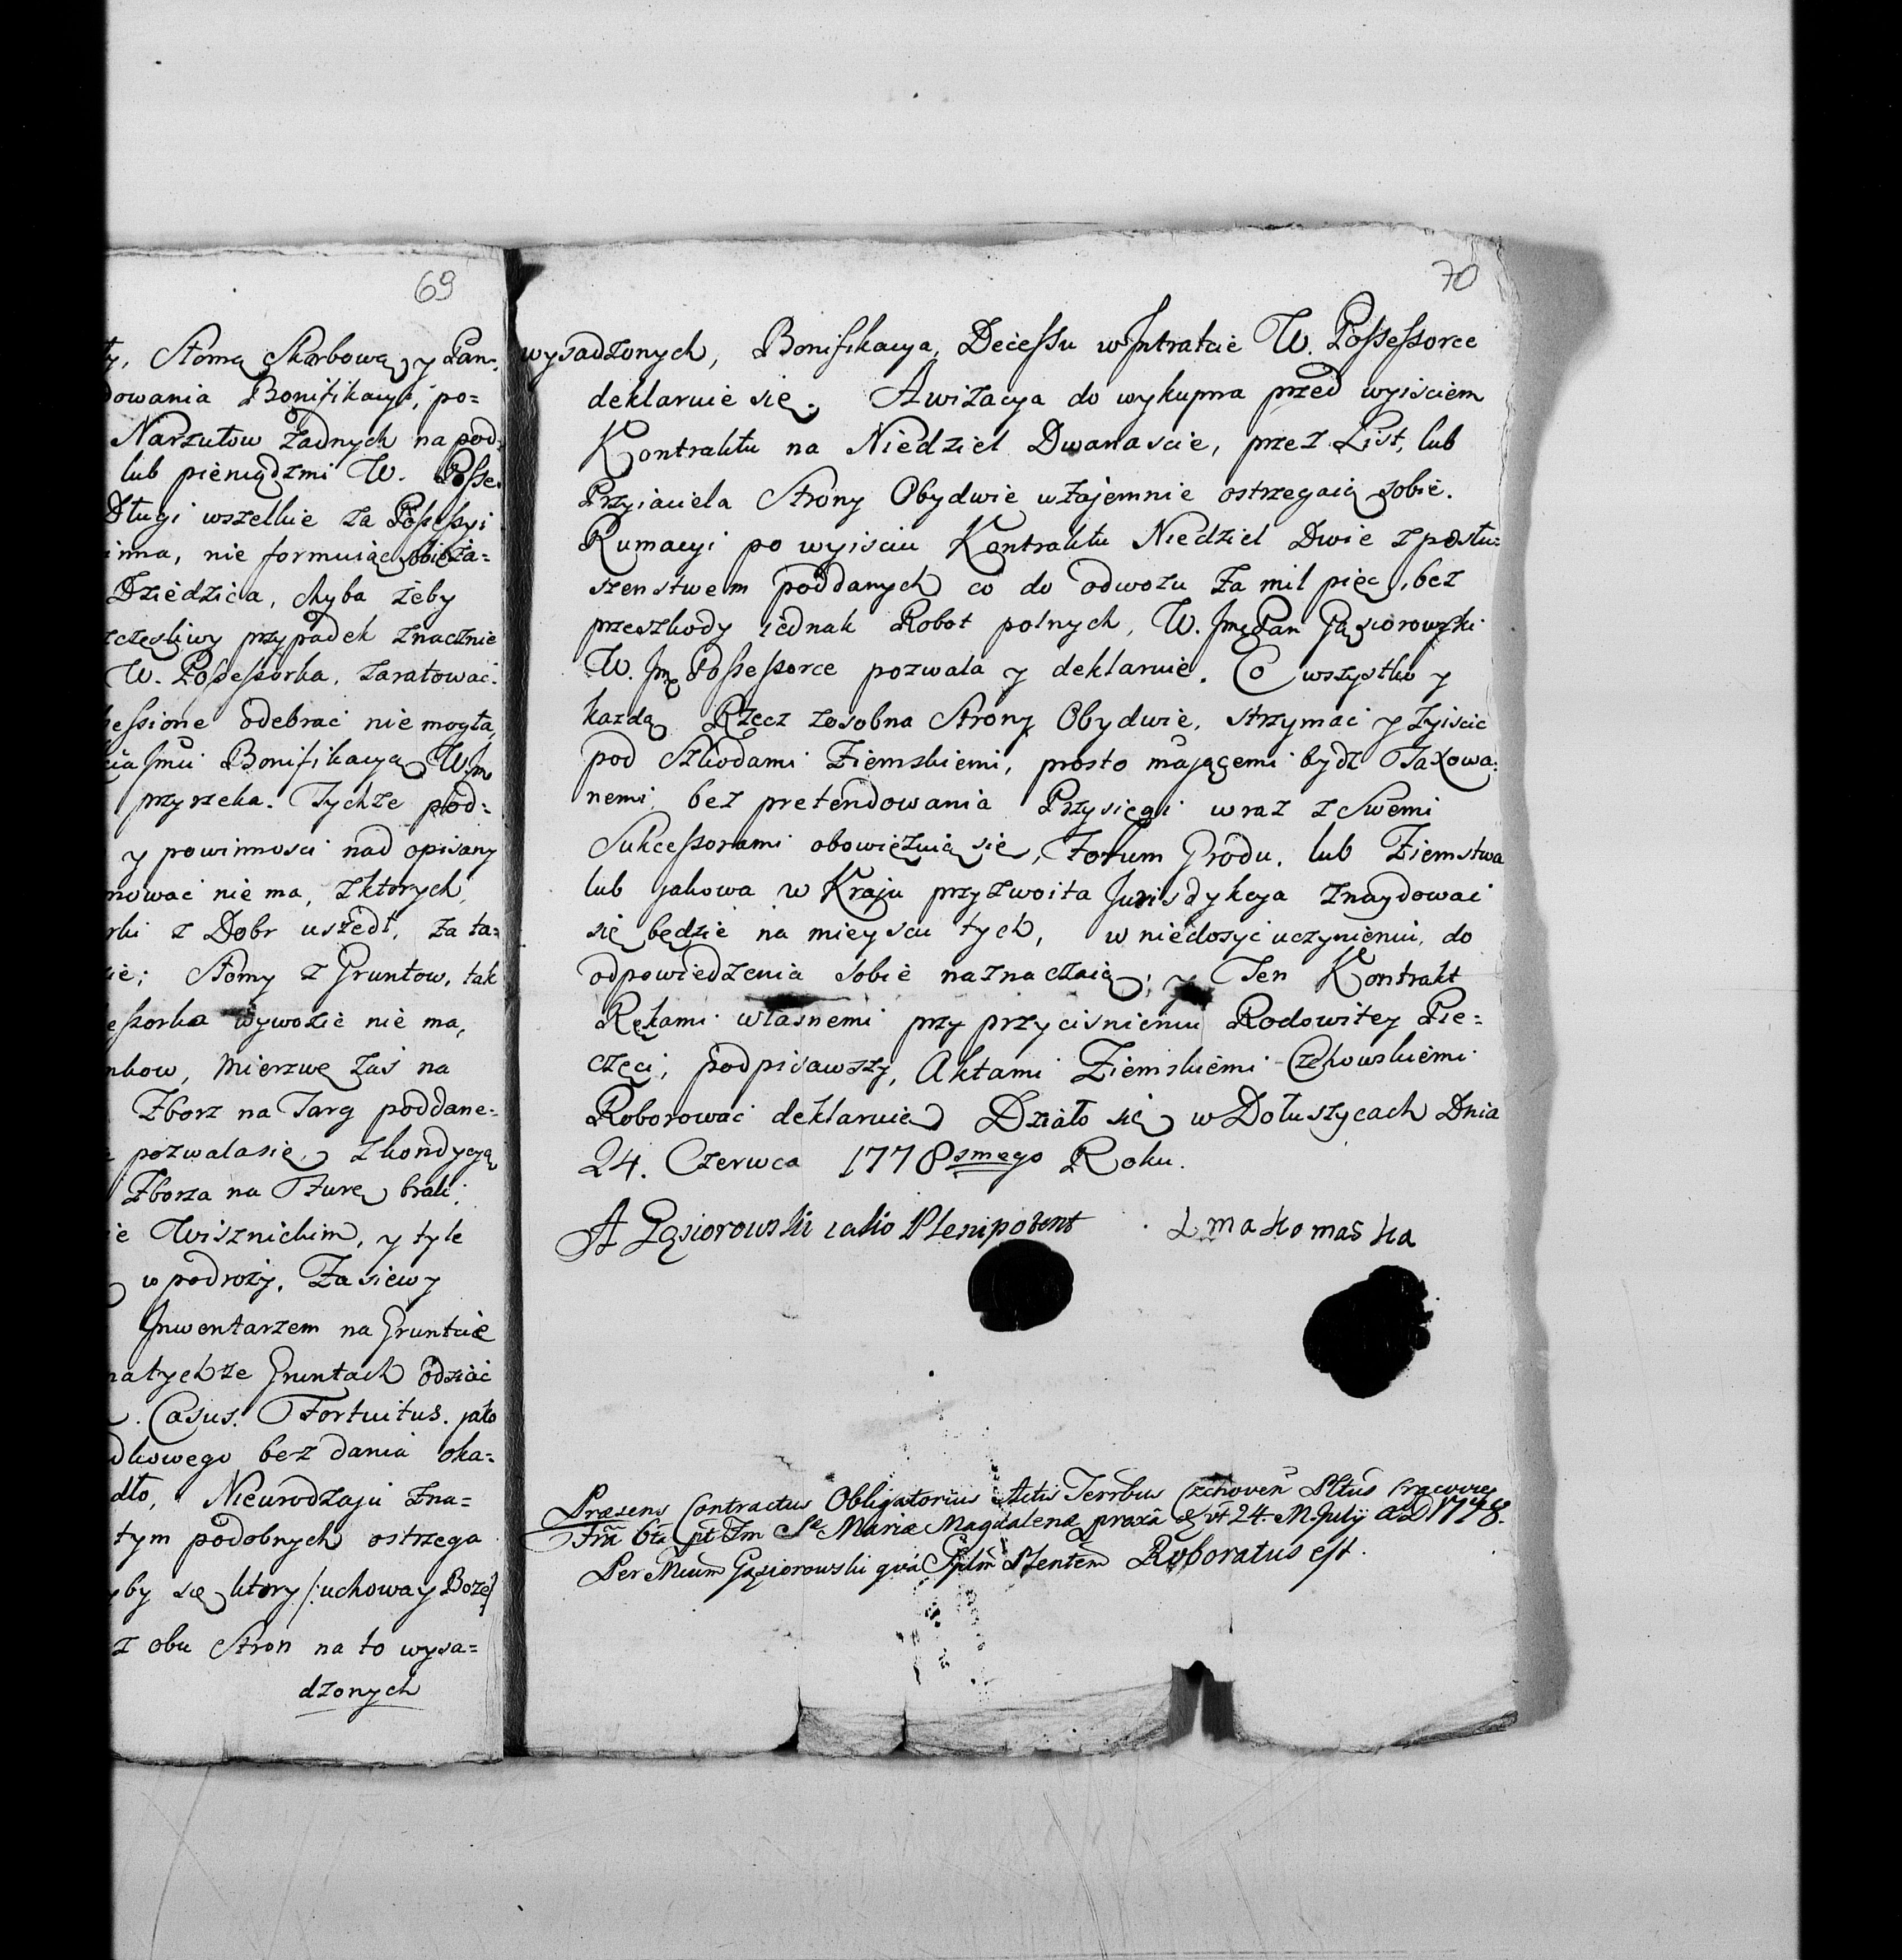 69
ty, Słomą Skarbową y Pan=
dowania Bonifikacyi, po=
Narzutow żadnych na pod=
lub pieniądzmi W. Posse=
Długi wszelkie za Possessyi
inna, nie formuiąc sobie za=
Dziedzica, chyba żeby
szczęsliwy przypadek znacznie
W. Possessorka, zaratować.
sessione odebrać nie mogła,
Bonifikacyą W Jm
przyrzeka. Tychże pod=
y powinnosci nad opisany
mować nie ma, z ktorych,
rki z Dobr uszedł, za ta=
ie; Słomy z Gruntow, tak
essorka wywozić nie ma,
nkow, Mierzwę zaś na
Zborz na Targ poddane=
pozwala się, z kondycyą
Zborza na Furę brali;
ie Wisznickim, y tyle
w podroży. Zasiewy
Inwentarzem na Gruncie
na tychże Gruntach odsiać
. Casus. Fortuitus. jako
dkowego bez dania oka=
dło, Nieurodzaju zna=
tym podobnych ostrzega
yby się ktory /:uchoway Boże:/
z obu Stron na to wysa=
dzonych
70
wysadzonych, Bonifikacya, Decessu w Intratcie W. Possessorce
deklaruie się. Awizacya do wykupna przed wyiściem
Kontraktu na Niedziel Dwanascie, przez List, lub
Przyiaciela Strony Obydwie wzajemnie ostrzegaią sobie.
Rumacyi po wyisciu Kontraktu Niedziel Dwie z posłu=
szenstwem poddanych co do odwozu za mil pięc, bez
przeszkody iednak Robot polnych, W. Jmć Pan Gąsiorowski
W. Jm Possessorce pozwala y deklaruie. Co wszystko y
każdą Rzecz zosobna Strony Obydwie, strzymać y ziscic
pod Szkodami Ziemskiemi, prosto maiącemi bydz Taxowa=
nemi bez pretendowania Przysięgi wraz z Swemi
Sukcessorami obowięzuią się, Forum Grodu, lub Ziemstwa
lub jakowa w Kraju przyzwoita Jurisdykcya znaydować
się będzie na mieyscu tych, w niedosyć uczynieniu, do
odpowiedzenia sobie naznaczaią; y Ten Kontrakt
Rękami własnemi przy przycisnieniu Rodowitey Pie=
częci, podpisawszy, Aktami Ziemskiemi Czchowskiemi
Roborować deklaruie Działo się w Dołuszycach Dnia
24. Czerwca 1778smego Roku.
A Gąsiorowski iako Plenipotent
Łmakomaska
Præsens Contractus Obligatorius Actis Terrbus Czchoven Pltus
Fria 6ta pt Fm Sæ Mariæ Magdalenæ proxa 24. M. July AD 1778.
Per Mcum Gąsiorowski qua Plentem Roboratus est.